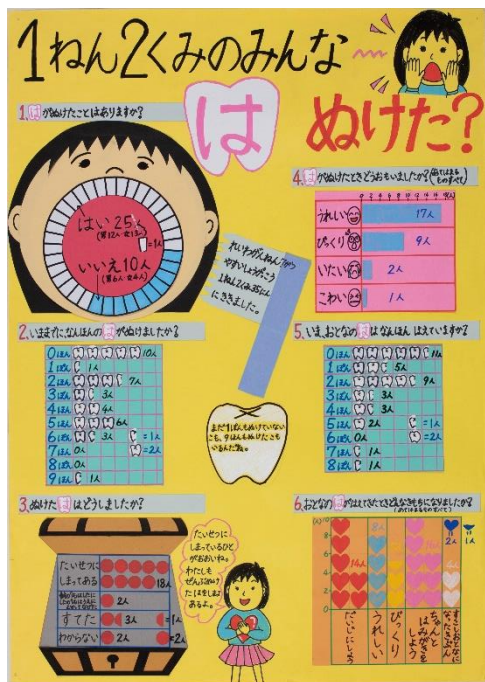 1ねん2くみのみんな
は ぬけた?
1.はがぬけたことはありますか?
はい25人
(男12人・女13人)
=1人
いいえ10人
(男6人・女4人)
れいわがんねん7がつ
やすいしょうがっこう
1ねん2くみ35にん
にききました。
2.いままでに、なんぼんのはがぬけましたか?
0ほん 10人
1ぽん 1人
2ほん 7人
3ぼん 3人
4ほん 4人
5ほん 6人
6ぽん 3人 =1人
7ほん 0人 =2人
8ほん 0人
9ほん 1人
まだ1ぽんもぬけていない
こも、9ほんもぬけたこも
いるんだね。
3.ぬけたははどうしましたか?
たいせつに
しまってある 18人
2人
すてた 3人 =1人
わからない 2人 =2人
たいせつに
しまっているひと
がおおいね。
わたしも
ぜんぶぬけ
たはをしまって
あるよ。
4.はがぬけたときどうおもいましたか?(あてはまるものすべて)
0 2 4 6 8 10 12 14 16 18(人)
うれしい 17人
びっくり 9人
いたい 2人
こわい 1人
5.いま、おとなのはなんぼん はえていますか?
0ほん 11人
1ぽん 5人
2ほん 9人
3ぼん 3人
4ほん 3人
5ほん 2人 =1人
6ぽん 0人 =2人
7ほん 1人
8ほん 0人
9ほん 1人
6.おとなのはがはえてきたときどんなきもちになりましたか?
(あてはまるものすべて)
(人)10
8
6
4
2
0
14人
8人
2人
=1人
4人
だいじにしよう
うれしい
びっくり
ちゃんと
はみがきを
しよう
すこしおとなに
なったきぶん